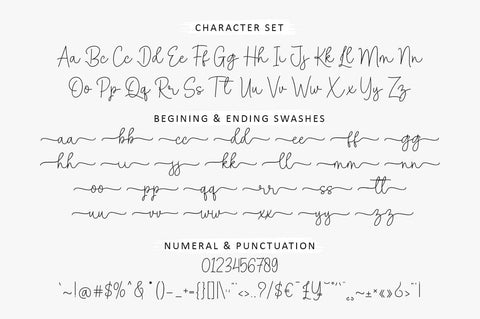 CHARACTER SET
Aa Bb Cc Dd Ee Ff Gg Hh Ii Jj Kk Ll Mm Nn
Oo Pp Qq Rr Ss Tt Uu Vv Ww Xx Yy Zz
BEGINING & ENDING SWASHES
aa bb cc dd ee ff gg
hh ii jj kk ll mm nn
oo pp qq rr ss tt
uu vv ww xx yy zz
NUMERAL & PUNCTUATION
0123456789
`~!@#$%^&*()-_+={}[]|\